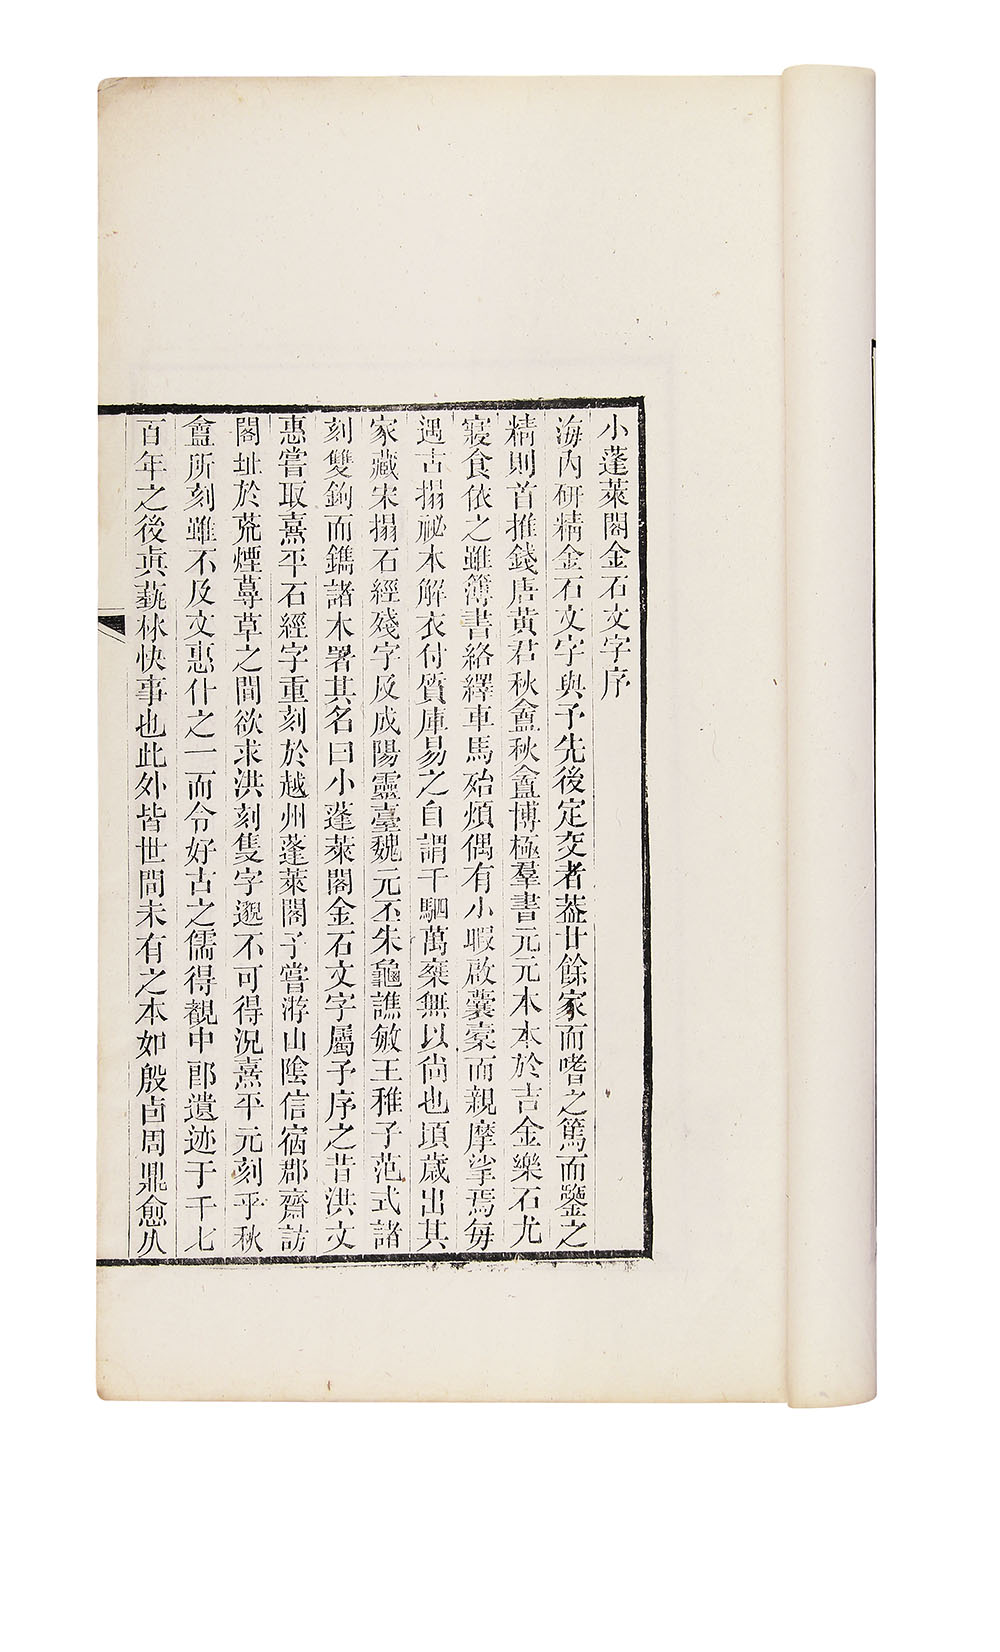 小蓬萊閣金石文字序
海內研精金石文字與予先後定交者葢廿餘家而嗜之篤而鑒之
精則首推錢唐黃君秋盦秋盦博極羣書元元本本於吉金樂石尤
寢食依之雖簿書絡繹車馬殆煩偶有小暇啟囊橐而親摩挲焉每
遇古搨祕本解衣付質庫易之自謂千駟萬鍾無以尙也頃歲出其
家藏宋搨石經殘字及成陽靈臺魏元丕朱龜譙敏王稚子范式諸
刻雙鉤而鐫諸木署其名曰小蓬萊閣金石文字屬予序之昔洪文
惠嘗取熹平石經字重刻於越州蓬萊閣予嘗游山陰信宿郡齋訪
閣址於荒煙蔓草之間欲求洪刻隻字邈不可得況熹平元刻乎秋
盦所刻雖不及文惠什之一而令好古之儒得覩中郎遺迹于千七
百年之後眞藝林快事也此外皆世間未有之本如殷卣周鼎愈久